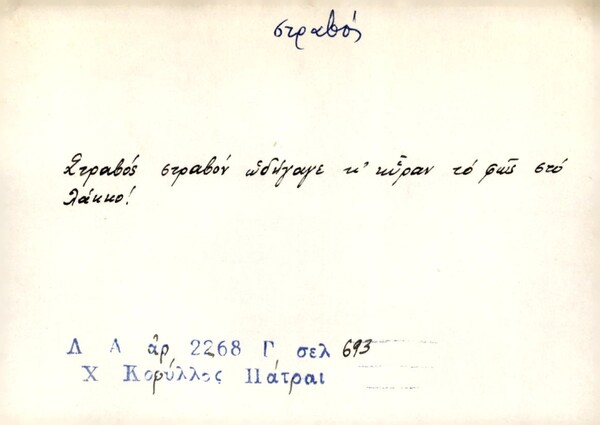 στραβός
Στραβός στραβόν ὡδήγαγε κ' ηὗραν τό φῶς στό
λάκκο!
Λ Α ἀρ 2268 Γ σελ 693
Χ Κορύλλος Πάτραι